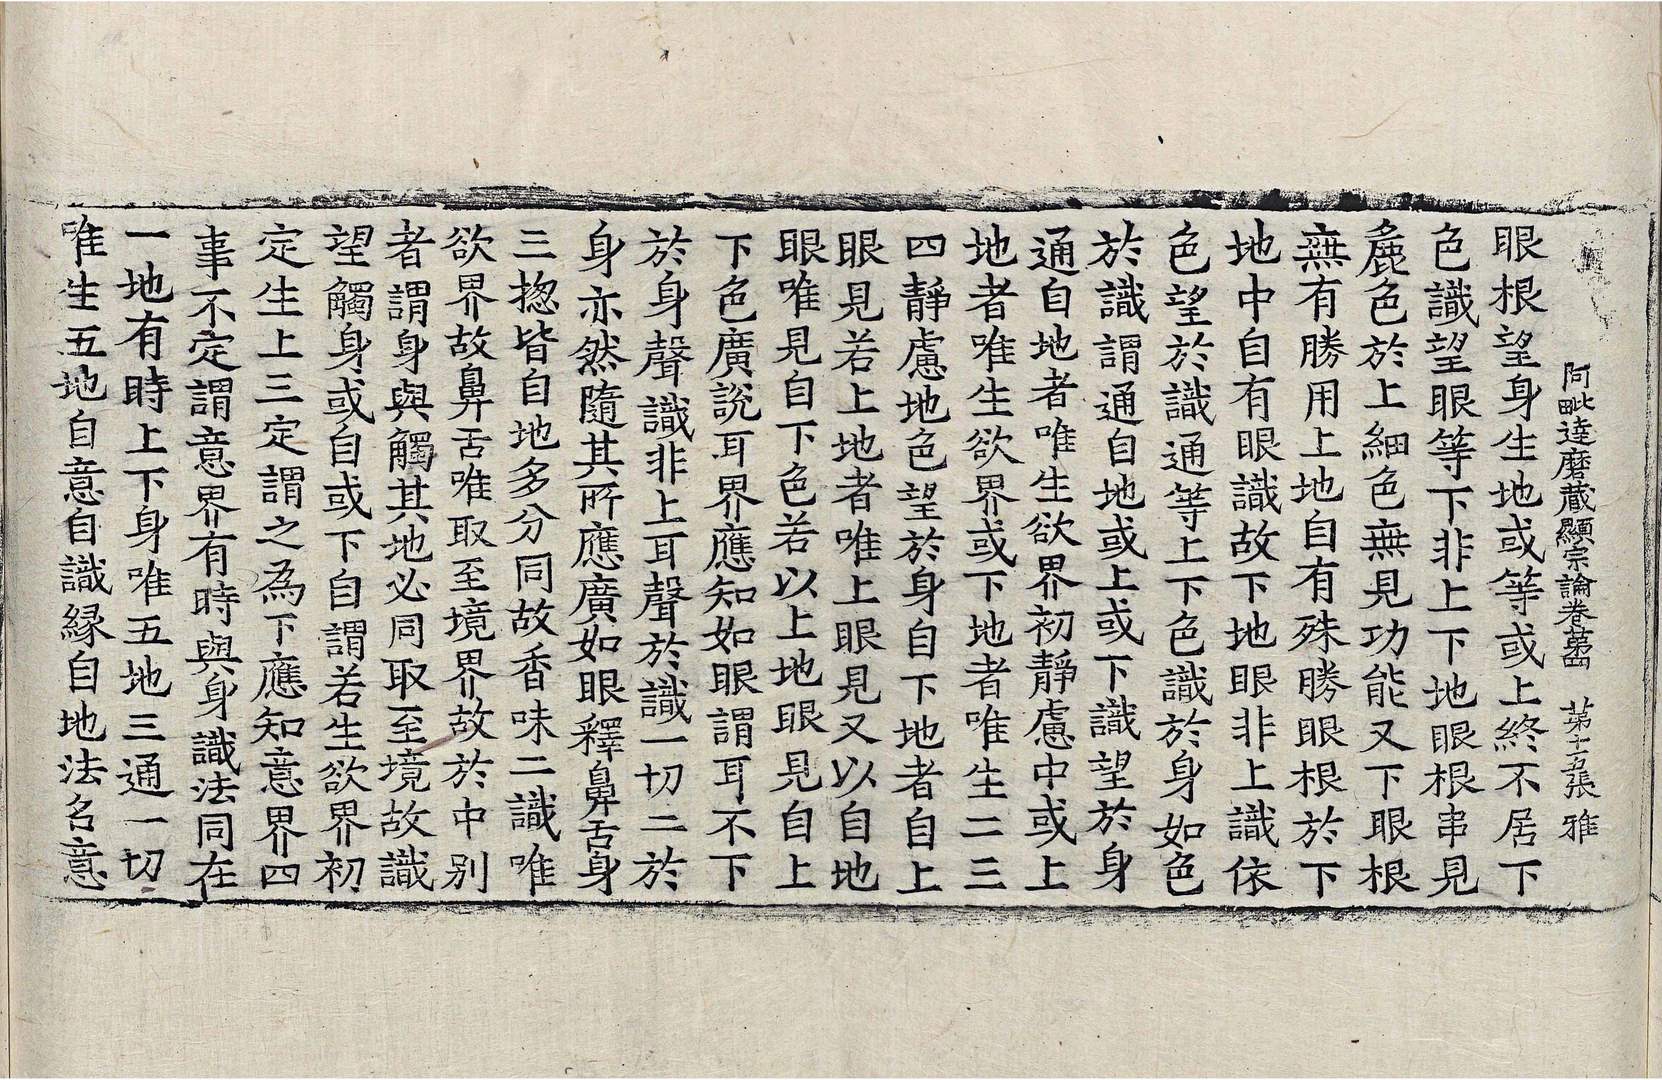 阿毗達磨藏顯宗論卷第四　第十五張　雅
眼根望身生地或等或上終不居下
色識望眼等下非上下地眼根串見
麁色於上細色無見功能又下眼根
無有勝用上地自有殊勝眼根於下
地中自有眼識故下地眼非上識依
色望於識通等上下色識於身如色
於識謂通自地或上或下識望於身
通自地者唯生欲界初靜慮中或上
地者唯生欲界或下地者唯生二三
四靜慮地色望於身自下地者自上
眼見若上地者唯上眼見又以自地
眼唯見自下色若以上地眼見自上
下色廣說耳界應知如眼謂耳不下
於身聲識非上耳聲於識一切二於
身亦然隨其所應廣如眼釋鼻舌身
三揔皆自地多分同故香味二識唯
欲界故鼻舌唯取至境界故於中別
者謂身與觸其地必同取至境故識
望觸身或自或下自謂若生欲界初
定生上三定謂之為下應知意界四
事不定謂意界有時與身識法同在
一地有時上下身唯五地三通一切
唯生五地自意自識緣自地法名意